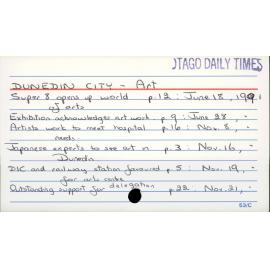 OTAGO DAILY TIMES
DUNEDIN CITY - Art
Super 8 opens up world p.12 : June 18, 1991
of arts
Exhibition acknowledges art work. p.9 : June 28, "
Artists work to meet hospital p.16 : Nov. 8, "
needs.
Japanese experts to see art n p.3 : Nov. 16, "
Dunedin
DIC and railway station favoured p.5 : Nov. 19, "
for arts centre
Outstanding support for delegation p.22 : Nov. 21, "
53/C